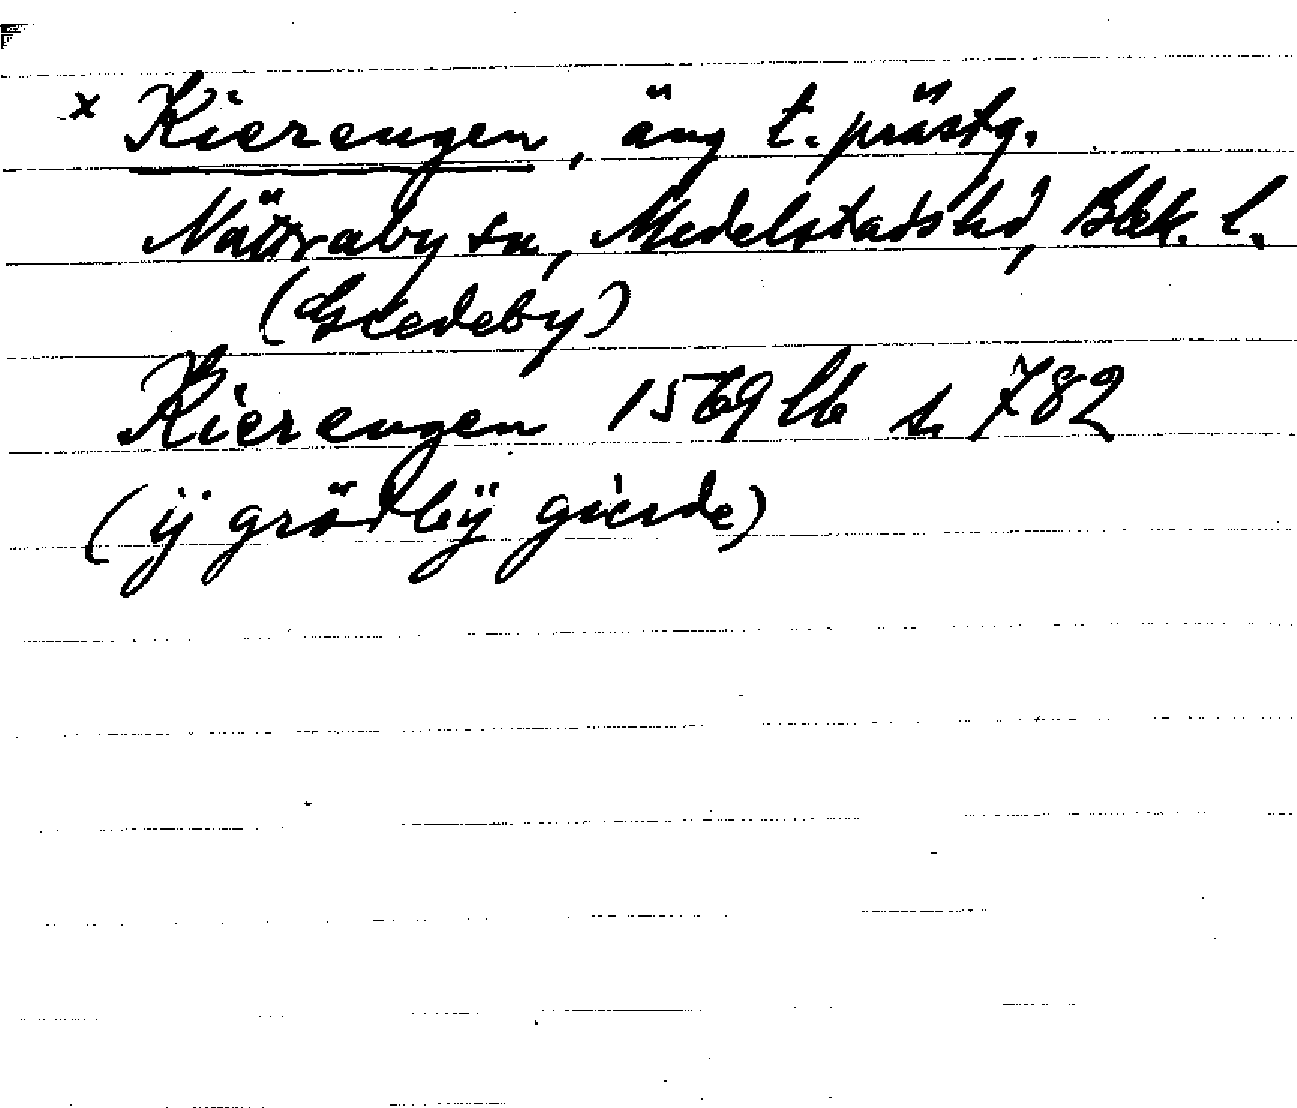 x Kierengen, äng t. prästg.
Nättraby sn, Medelstads hd, Blek. l.
(Gredeby)
Kierengen 1569 lb s. 782
(ÿ grötbÿ gierde)